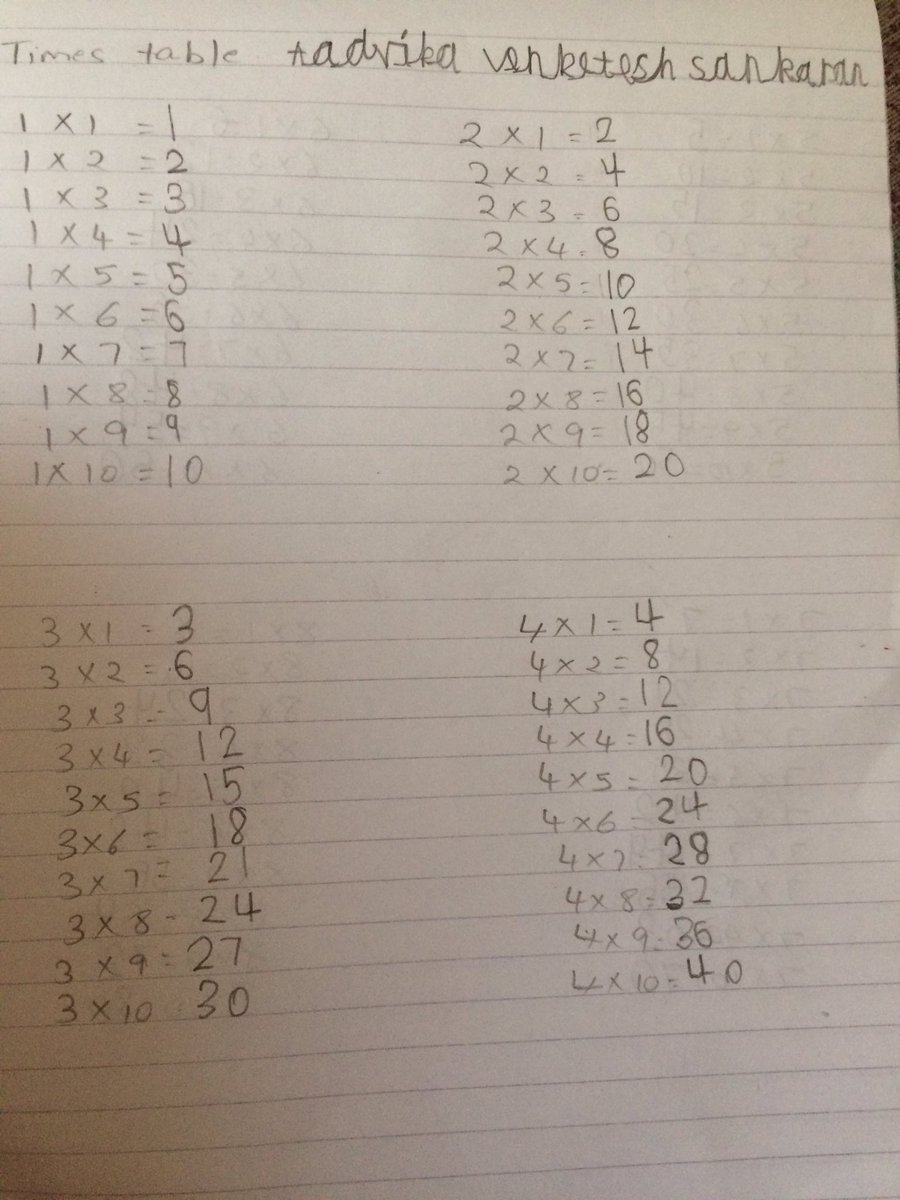 Times table tadvika venketesh sankaran
1 x 1 = 1
1 x 2 = 2
1 x 3 = 3
1 x 4 = 4
1 x 5 = 5
1 x 6 = 6
1 x 7 = 7
1 x 8 = 8
1 x 9 = 9
1 x 10 = 10
2 x 1 = 2
2 x 2 = 4
2 x 3 = 6
2 x 4 = 8
2 x 5 = 10
2 x 6 = 12
2 x 7 = 14
2 x 8 = 16
2 x 9 = 18
2 x 10 = 20
3 x 1 = 3
3 x 2 = 6
3 x 3 = 9
3 x 4 = 12
3 x 5 = 15
3 x 6 = 18
3 x 7 = 21
3 x 8 - 24
3 x 9 = 27
3 x 10 30
4 x 1 = 4
4 x 2 = 8
4 x 3 = 12
4 x 4 = 16
4 x 5 = 20
4 x 6 = 24
4 x 7 = 28
4 x 8 = 32
4 x 9 = 36
4 x 10 = 40